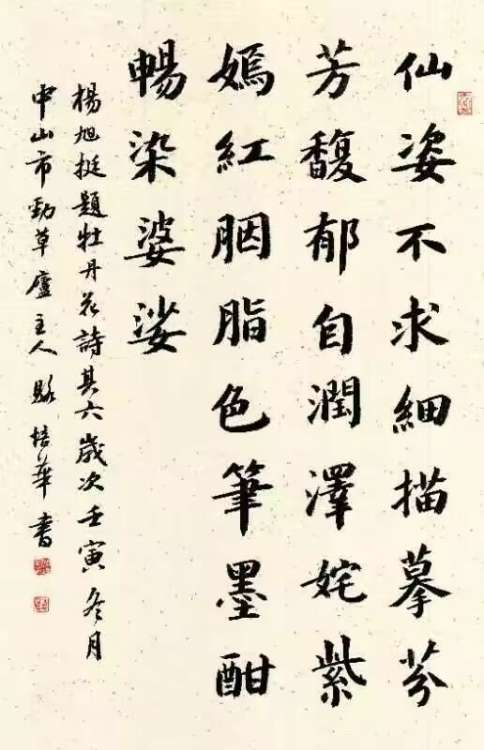 仙姿不求細描摹芬
芳馥郁自潤澤姹紫
嫣紅胭脂色筆墨酣
暢染婆娑
楊旭挺題牡丹花詩其六歲次壬寅冬月
中山市勁草廬主人駱培華書